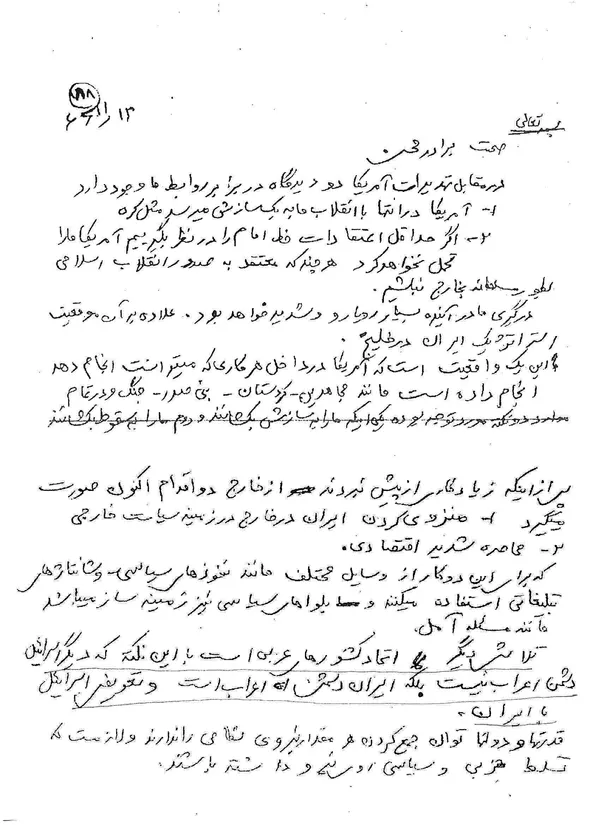 ۸۸
۱۳
بسمه تعالی
صحبت برادر محسن
در مقابل تهدیدات آمریکا دو دیدگاه در برابر روابط ما وجود دارد
۱- آمریکا در انتها با انقلاب ما به یک سازشی میرسد مثل کره
۲- اگر حداقل اعتقادات خط امام را در نظر بگیریم آمریکا ما را
تحمل نخواهد کرد هر چند که معتقد به صدور انقلاب اسلامی
بطور به خارج نباشیم.
درگیری ما در آینده بسیار رویارو و شدید خواهد بود. علاوه بر آن موقعیت
استراتژیک ایران در خلیج.
این یک واقعیت است که آمریکا در داخل هر کاری که میتوانست انجام دهد
انجام داده است مانند مجاهدین - کردستان - بنی صدر - جنگ و در تمام
موارد دو نکته مورد توجه بوده یکی اینکه ما را به سازش بکشانند و دوم ما را به سقوط بکشانند
پس از اینکه زیاد کاری از پیش نبردند از خارج دو اقدام اکنون صورت
میگیرد ۱- منزوی کردن ایران در خارج در زمینه سیاست خارجی
۲- محاصره شدید اقتصادی.
که برای این دو کار از وسایل مختلف مانند نفوذهای سیاسی - و شانتاژهای
تبلیغاتی استفاده میکنند و بلواهای سیاسی نیز زمینه ساز میباشد
مانند مسئله آمل.
تلاش دیگر اتحاد کشورهای عربی است با این نکته که دیگر اسرائیل
دشمن اعراب نیست بلکه ایران دشمن اعراب است و تعویض اسرائیل
با ایران.
قدرتها و دولتها توان جمع کردن هر مقدار نیروی نظامی را ندارند و لازمست که
تسلط حزبی و سیاسی روی و داشته باشند.